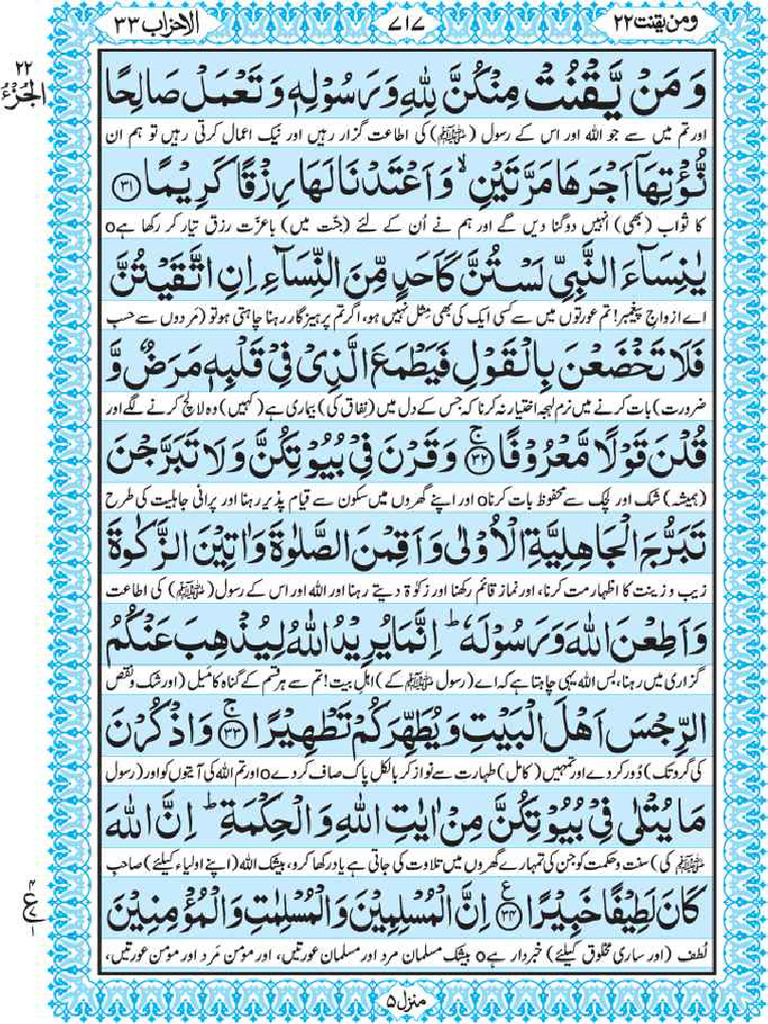 ومن یقنت ۲۲
۷۱۷
الاحزاب ۳۳
۲۲
الجزء
وَ مَنْ يَّقْنُتْ مِنْكُنَّ لِلّٰهِ وَ رَسُوْلِهٖ وَ تَعْمَلْ صَالِحًا
اور تم میں سے جو اللہ اور اس کے رسول (ﷺ) کی اطاعت گزار رہیں اور نیک اعمال کرتی رہیں تو ہم ان
نُّؤْتِهَاۤ اَجْرَهَا مَرَّتَيْنِ ۙ وَ اَعْتَدْنَا لَهَا رِزْقًا كَرِيْمًا ﴿۳۱﴾
کا ثواب (بھی) انہیں دوگنا دیں گے اور ہم نے اُن کے لئے (جنّت میں) باعزّت رزق تیار کر رکھا ہےo
يٰنِسَآءَ النَّبِيِّ لَسْتُنَّ كَاَحَدٍ مِّنَ النِّسَآءِ اِنِ اتَّقَيْتُنَّ
اے ازواجِ پیغمبر! تم عورتوں میں سے کسی ایک کی بھی مِثل نہیں ہو، اگر تم پرہیزگار رہنا چاہتی ہو تو (مَردوں سے حسبِ
فَلَا تَخْضَعْنَ بِالْقَوْلِ فَيَطْمَعَ الَّذِيْ فِيْ قَلْبِهٖ مَرَضٌ وَّ
ضرورت) بات کرنے میں نرم لہجہ اختیار نہ کرنا کہ جس کے دل میں (نِفاق کی) بیماری ہے (کہیں) وہ لالچ کرنے لگے اور
قُلْنَ قَوْلًا مَّعْرُوْفًا ﴿۳۲﴾ ۚ وَ قَرْنَ فِيْ بُيُوْتِكُنَّ وَ لَا تَبَرَّجْنَ
(ہمیشہ) شک اور لچک سے محفوظ بات کرناo اور اپنے گھروں میں سکون سے قیام پذیر رہنا اور پرانی جاہلیت کی طرح
تَبَرُّجَ الْجَاهِلِيَّةِ الْاُوْلٰى وَ اَقِمْنَ الصَّلٰوةَ وَ اٰتِيْنَ الزَّكٰوةَ
زیب و زینت کا اظہار مت کرنا، اور نماز قائم رکھنا اور زکوٰۃ دیتے رہنا اور اللہ اور اس کے رسول (ﷺ) کی اطاعت
وَ اَطِعْنَ اللّٰهَ وَ رَسُوْلَهٗ ؕ اِنَّمَا يُرِيْدُ اللّٰهُ لِيُذْهِبَ عَنْكُمُ
گزاری میں رہنا، بس اللہ یہی چاہتا ہے کہ اے (رسول ﷺ کے) اہلِ بیت! تم سے ہر قسم کے گناہ کا مَیل (اور شک و نقص
الرِّجْسَ اَهْلَ الْبَيْتِ وَ يُطَهِّرَكُمْ تَطْهِيْرًا ﴿۳۳﴾ ۚ وَ اذْكُرْنَ
کی گرد تک) دُور کر دے اور تمہیں (کامل) طہارت سے نواز کر بالکل پاک صاف کر دےo اور تم اللہ کی آیتوں کو اور (رسول
مَا يُتْلٰى فِيْ بُيُوْتِكُنَّ مِنْ اٰيٰتِ اللّٰهِ وَ الْحِكْمَةِ ؕ اِنَّ اللّٰهَ
ﷺ کی) سنت و حکمت کو جن کی تمہارے گھروں میں تلاوت کی جاتی ہے یاد رکھا کرو، بیشک اللہ (اپنے اولیاء کیلئے) صاحبِ
كَانَ لَطِيْفًا خَبِيْرًا ﴿۳۴﴾ ع اِنَّ الْمُسْلِمِيْنَ وَ الْمُسْلِمٰتِ وَ الْمُؤْمِنِيْنَ
۴ ع ۱
لُطف (اور ساری مخلوق کیلئے) خبردار ہےo بیشک مسلمان مرد اور مسلمان عورتیں، اور مومن مَرد اور مومن عورتیں،
منزل ۵